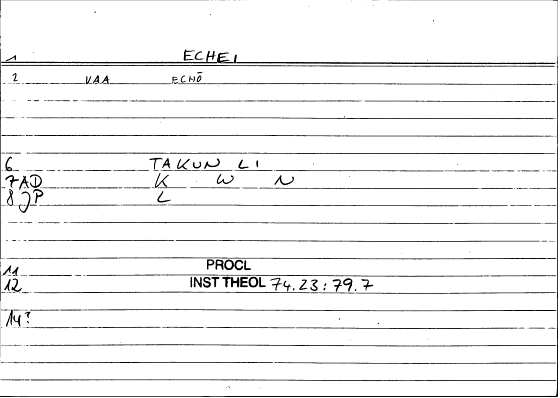 1 ECHEI
2 VAA ECHŌ
6 TAKUN LI
7 AD K W N
8 JP L
11 PROCL
12 INST THEOL 74.23:79.7
14?